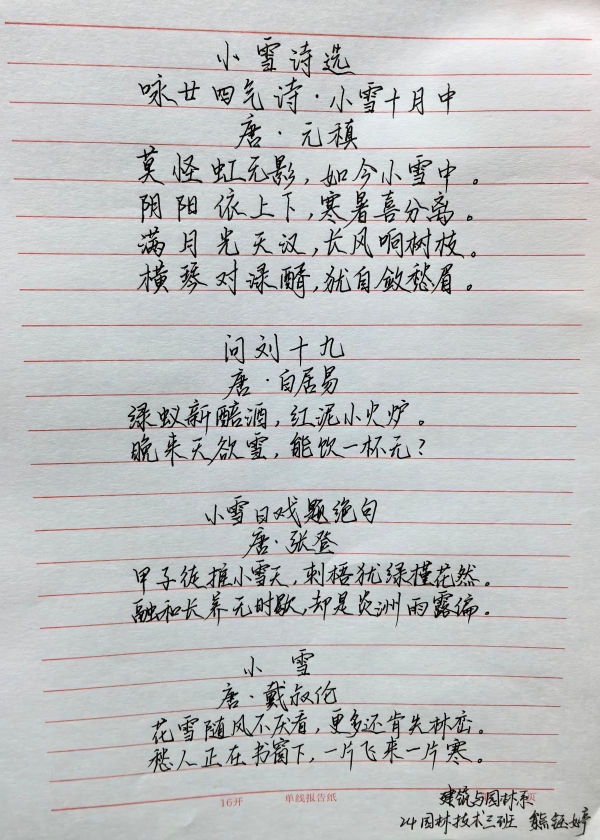 小雪诗选
咏廿四气诗·小雪十月中
唐·元稹
莫怪虹无影,如今小雪中。
阴阳依上下,寒暑喜分离。
满月光天汉,长风响树枝。
横琴对渌醑,犹自敛愁眉。
问刘十九
唐·白居易
绿蚁新醅酒,红泥小火炉。
晚来天欲雪,能饮一杯无?
小雪日戏题绝句
唐·张登
甲子徒推小雪天,刺梧犹绿槿花然。
融和长养无时歇,却是炎洲雨露偏。
小雪
唐·戴叔伦
花雪随风不厌看,更多还肯失林峦。
愁人正在书窗下,一片飞来一片寒。
16开 单线报告纸
建筑与园林系
24园林技术三班 熊婷